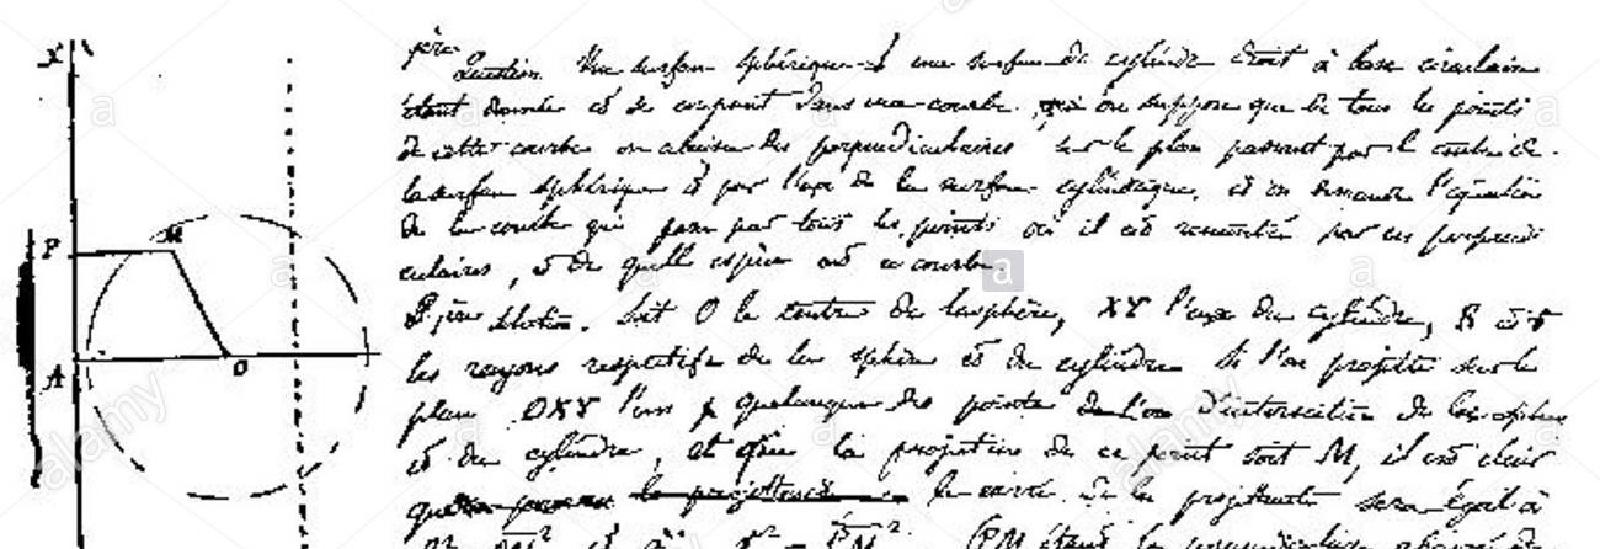 1ère Question. Une surface sphérique et une surface de cylindre droit à base circulaire
étant données et se coupant dans une courbe, on suppose que de tous les points
de cette courbe on abaisse des perpendiculaires sur le plan passant par le centre de
la surface sphérique et par l'axe de la surface cylindrique, et on demande l'équation
de la courbe qui passe par tous les points où il est rencontré par ces perpendi
culaires, et de quelle espèce est ce courbe.
Solution. Soit O le centre de la sphère, XY l'axe du cylindre, R et r
les rayons respectifs de la sphère et du cylindre si l'on projette sur le
plan OXY l'un quelconque des points d'intersection de la sphère
et du cylindre, et que la projection de ce point soit M, il est clair
que le projettante le carré de la projettante sera égal à
(PM étant la perpendiculaire
X
P
M
A
O
a
alamy